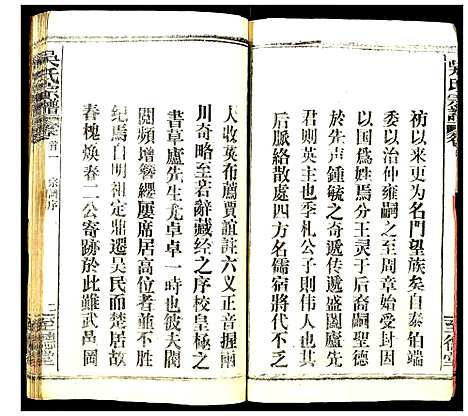 祊以來更为名門望族矣自泰伯端
委以治仲雍嗣之至周章始受封因
以國爲姓焉分王灵于后裔嗣聖德
於先声鍾毓之奇遞传遞盛闔廬先
君則英主也季札公子則伟人也厥
后脈絡散處四方名儒宿將代不乏
人收英布薦賈誼註六义正音握兩
川奇略至若辭藏经之序校皇極之
書草廬先生尤卓卓一時也彼夫閥
閱頻增簪纓屢席居高位者並不胜
纪焉自明祖定鼎遷吴民而楚居故
春槐煥春二公寄跡於此雖武邑岡
吳氏宗譜
首一
宗譜序
二
至德堂
吳氏宗譜
至德堂